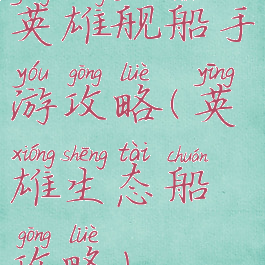 英雄舰船手
yóu gòng lüè yīng
游攻略(英
xióng shēng tài chuán
雄生态船
gòng lüè
攻略)